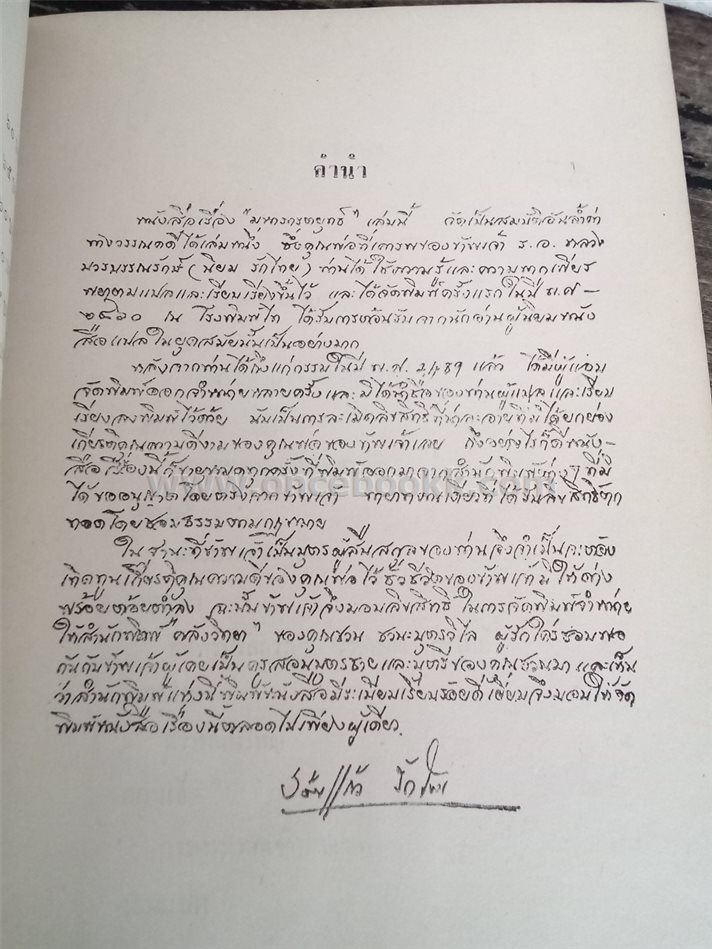 คำนำ
หนังสือเรื่อง "มหากาพยุทธ์" เล่มนี้ จัดเป็นสมบัติอันล้ำค่า
ทางวรรณคดีได้เล่มหนึ่ง ซึ่งคุณพ่อที่เคารพของข้าพเจ้า ร.อ. หลวง
บวรบรรณรักษ์ (นิยม รักไทย) ท่านได้ใช้ความรู้และความพากเพียร
พยายามแปลและเรียบเรียงขึ้นไว้ และได้จัดพิมพ์ครั้งแรกในปี พ.ศ –
๒๔๖๐ ณ โรงพิมพ์ไท ได้รับการต้อนรับจากนักอ่านผู้นิยมหนัง
สือแปลในยุคสมัยนั้นเป็นอย่างมาก
หลังจากท่านได้ถึงแก่กรรมในปี พ.ศ. ๒๔๘๗ แล้ว ได้มีผู้แอบ
จัดพิมพ์ออกจำหน่ายหลายครั้งและมิได้นำชื่อของท่านผู้แปลและเรียบ
เรียงลงพิมพ์ไว้ด้วย นับเป็นการละเมิดลิขสิทธิ์ที่น่าละอายที่มิได้ยกย่อง
เกียรติคุณความดีงามของคุณพ่อของข้าพเจ้าเลย ถึงอย่างไรก็ดีหนัง–
สือเรื่องนี้ก็ขายหมดทุกครั้งที่พิมพ์ออกมาจากสำนักพิมพ์ต่างๆ ที่มิ
ได้ขออนุญาตโดยตรงจากข้าพเจ้า ทายาทคนเดียวที่ได้รับลิขสิทธิ์ตก
ทอดโดยชอบธรรมตามกฎหมาย
ในฐานะที่ข้าพเจ้าเป็นบุตรผู้สืบสกุลของท่านจึงจำเป็นจะต้อง
เทิดทูนเกียรติคุณความดีของคุณพ่อไว้ชั่วชีวิตของข้าพเจ้ามิให้ด่าง
พร้อยด้อยต่ำลง ฉะนั้นข้าพเจ้าจึงมอบลิขสิทธิ์ในการจัดพิมพ์จำหน่าย
ให้สำนักพิมพ์ "คลังวิทยา" ของคุณชวน ชวนะบุตรวิไล ผู้รักใคร่ชอบพอ
กันกับข้าพเจ้าผู้เคยเป็นครูสอนบุตรชายและบุตรีของคุณชวนมา และเห็น
ว่าสำนักพิมพ์แห่งนี้พิมพ์หนังสือมีระเบียบเรียบร้อยดีเยี่ยมจึงมอบให้จัด
พิมพ์หนังสือเรื่องนี้ตลอดไปเพียงผู้เดียว.
รักไทย